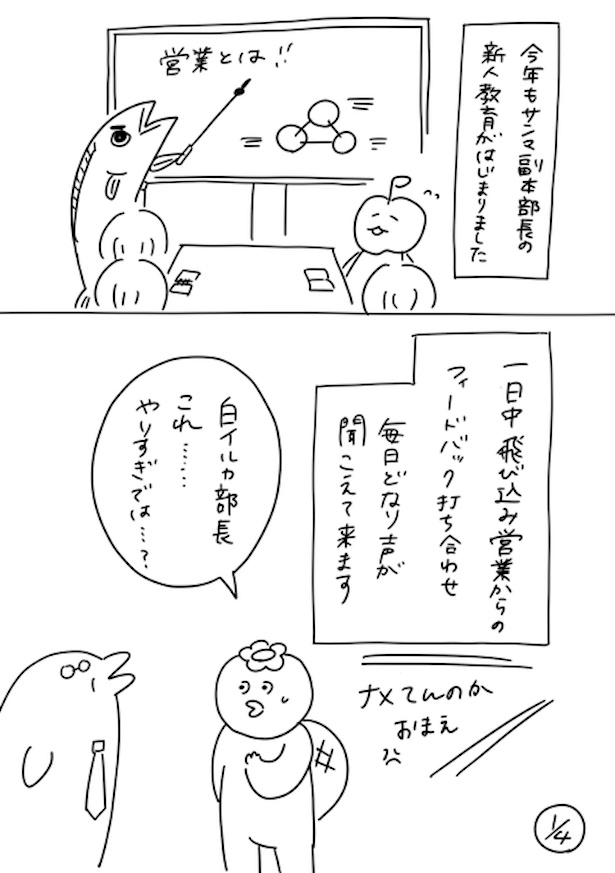 今年もサンマ副本部長の
新人教育がはじまりました
営業とは!!
一日中飛び込み営業からの
フィードバック打ち合わせ
毎日どなり声が
聞こえて来ます
白イルカ部長
これ……
やりすぎでは…?
ナメてんのか
おまえ
1/4